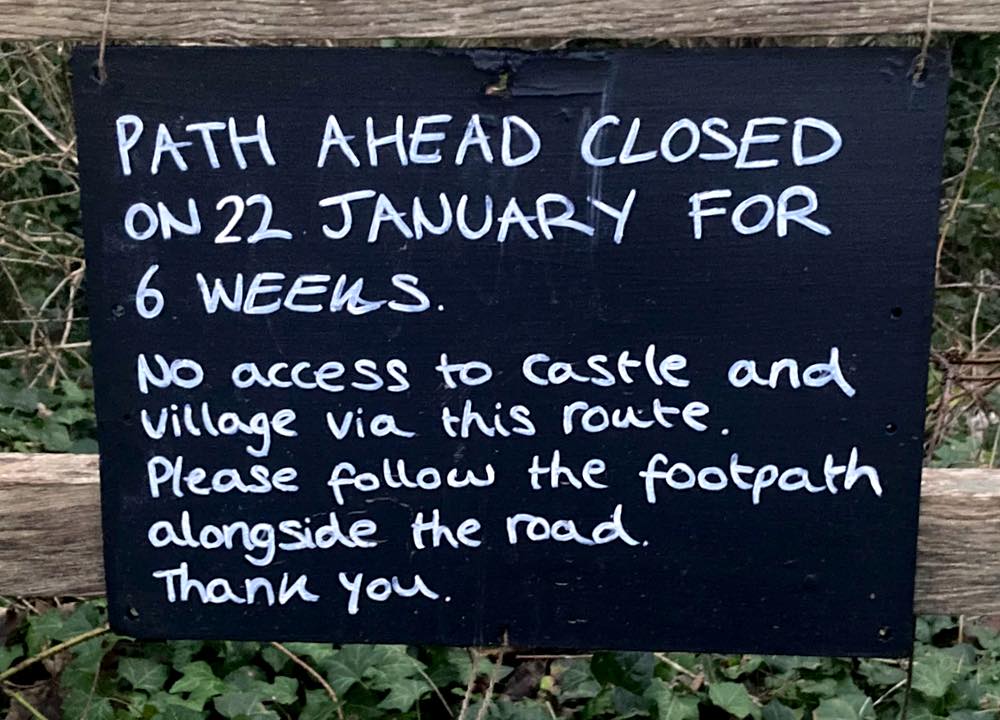 PATH AHEAD CLOSED
ON 22 JANUARY FOR
6 WEEKS.
No access to castle and
village via this route.
Please follow the footpath
alongside the road.
Thank you.